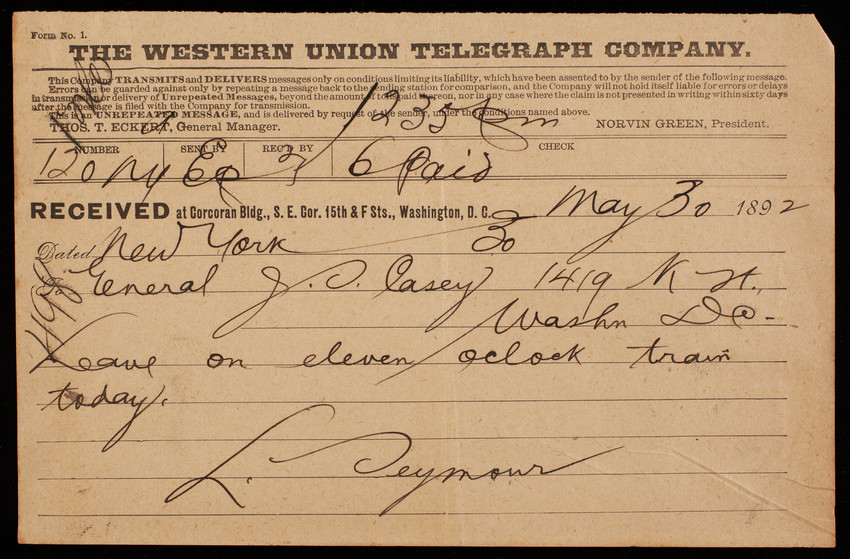 Form No. 1.
THE WESTERN UNION TELEGRAPH COMPANY.
This Company TRANSMITS and DELIVERS messages only on conditions limiting its liability, which have been assented to by the sender of the following message.
Errors can be guarded against only by repeating a message back to the sending station for comparison, and the Company will not hold itself liable for errors or delays
in transmission or delivery of Unrepeated Messages, beyond the amount of tolls paid thereon, nor in any case where the claim is not presented in writing within sixty days
after the message is filed with the Company for transmission.
This is an UNREPEATED MESSAGE, and is delivered by request of the sender, under the conditions named above.
THOS. T. ECKERT, General Manager. NORVIN GREEN, President.
1235
NUMBER SENT BY REC'D BY CHECK
120 Ny 6 Paid
RECEIVED at Corcoran Bldg., S. E. Cor. 15th & F Sts., Washington, D. C. May 30 1892
Dated New York 30
To General J. S. Casey 1419 K St.,
Washn DC-
498
Leave on eleven oclock train
today.
L. Seymour